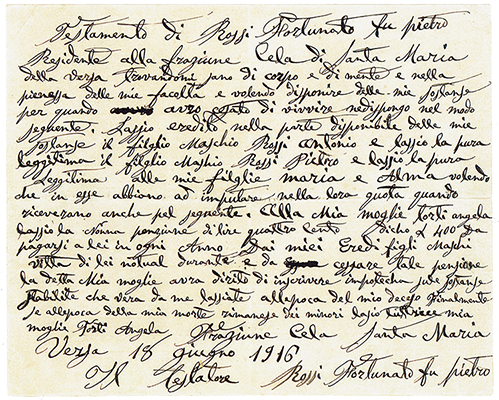 Testamento di Rossi Fortunato fu pietro
Residente alla fraziune Cela di Santa Maria
della versa trovandomi sano di corpo e di mente e nella
pienessa delle mie facolta e volendo disponire delle mie sostanse
per quando avro cesato di vivvire nedispongo nel modo
seguente. Lassio eredito nella parte disponibile delle mie
sostanse il filglio Maschio Rossi Antonio e lassio la pura
leggitima il filglio Maschio Rossi Pietro e lassio la pura
Leggitima alle mie filglie maria e Alma volendo
che in esse abbiano ad imputare nella loro quota quando
riceverano anche pel seguente. Alla Mia moglie torti angela
lassio la nonna pensione di lire quattro cento dicho £ 400 da
pagarsi a lei in ogni Anno dai miei Eredi figli Maschi
vitta di lei notual durante e da cessare tale pensione
la detta Mia moglie avra dirito di inscrivere impotecha sule sostanse
stabilite che vera da me lassiate allepoca del mio decesso finalmente
se allepoca della mia morte rimanese dei minori lasio tuttrice mia
moglia Torti Angela Frazione Cela Santa Maria
Versa 18 giugno 1916
Il testatore Rossi Fortunato fu pietro